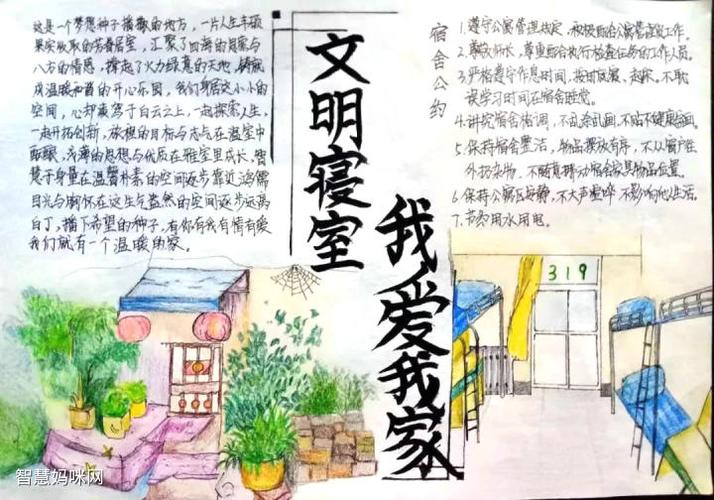 这是一个梦想种子播撒的地方，一片人生丰硕
果实收获的芳香居室，汇聚了四海的
八方的情思，撑起了火力绿意的天地，铸就
成温暖和谐的开心乐园，我们身居这小小的
空间，心却乘驾于白云之上，一起探索人生，
一起开拓创新，旅程的目标与志气在温室中
酝酿，浅薄的思想与优质在雅室里成长，智
慧于身量在温馨朴素的空间逐步靠近鸿儒
目光与胸怀在这生气盎然的空间逐步远离
白丁，播下希望的种子，有你有我有情有爱
我们就有一个温暖的家。
文明寝室
我爱我家
宿舍公约
1.遵守公寓管理规定，积极配合公寓管理员工作。
2.尊敬师长，尊重配合执行检查任务的工作人员。
3.严格遵守作息时间，按时就寝、起床，不耽
误学习时间在宿舍睡觉。
4.讲究宿舍格调，不乱涂乱画，不贴不健康画。
5.保持宿舍整洁，物品摆放有序，不从窗户往
外扔杂物，不随意挪动宿舍家具物品位置。
6.保持公寓区安静，不大声喧哗，不影响他人生活。
7.节约用水用电。
319
智慧妈咪网